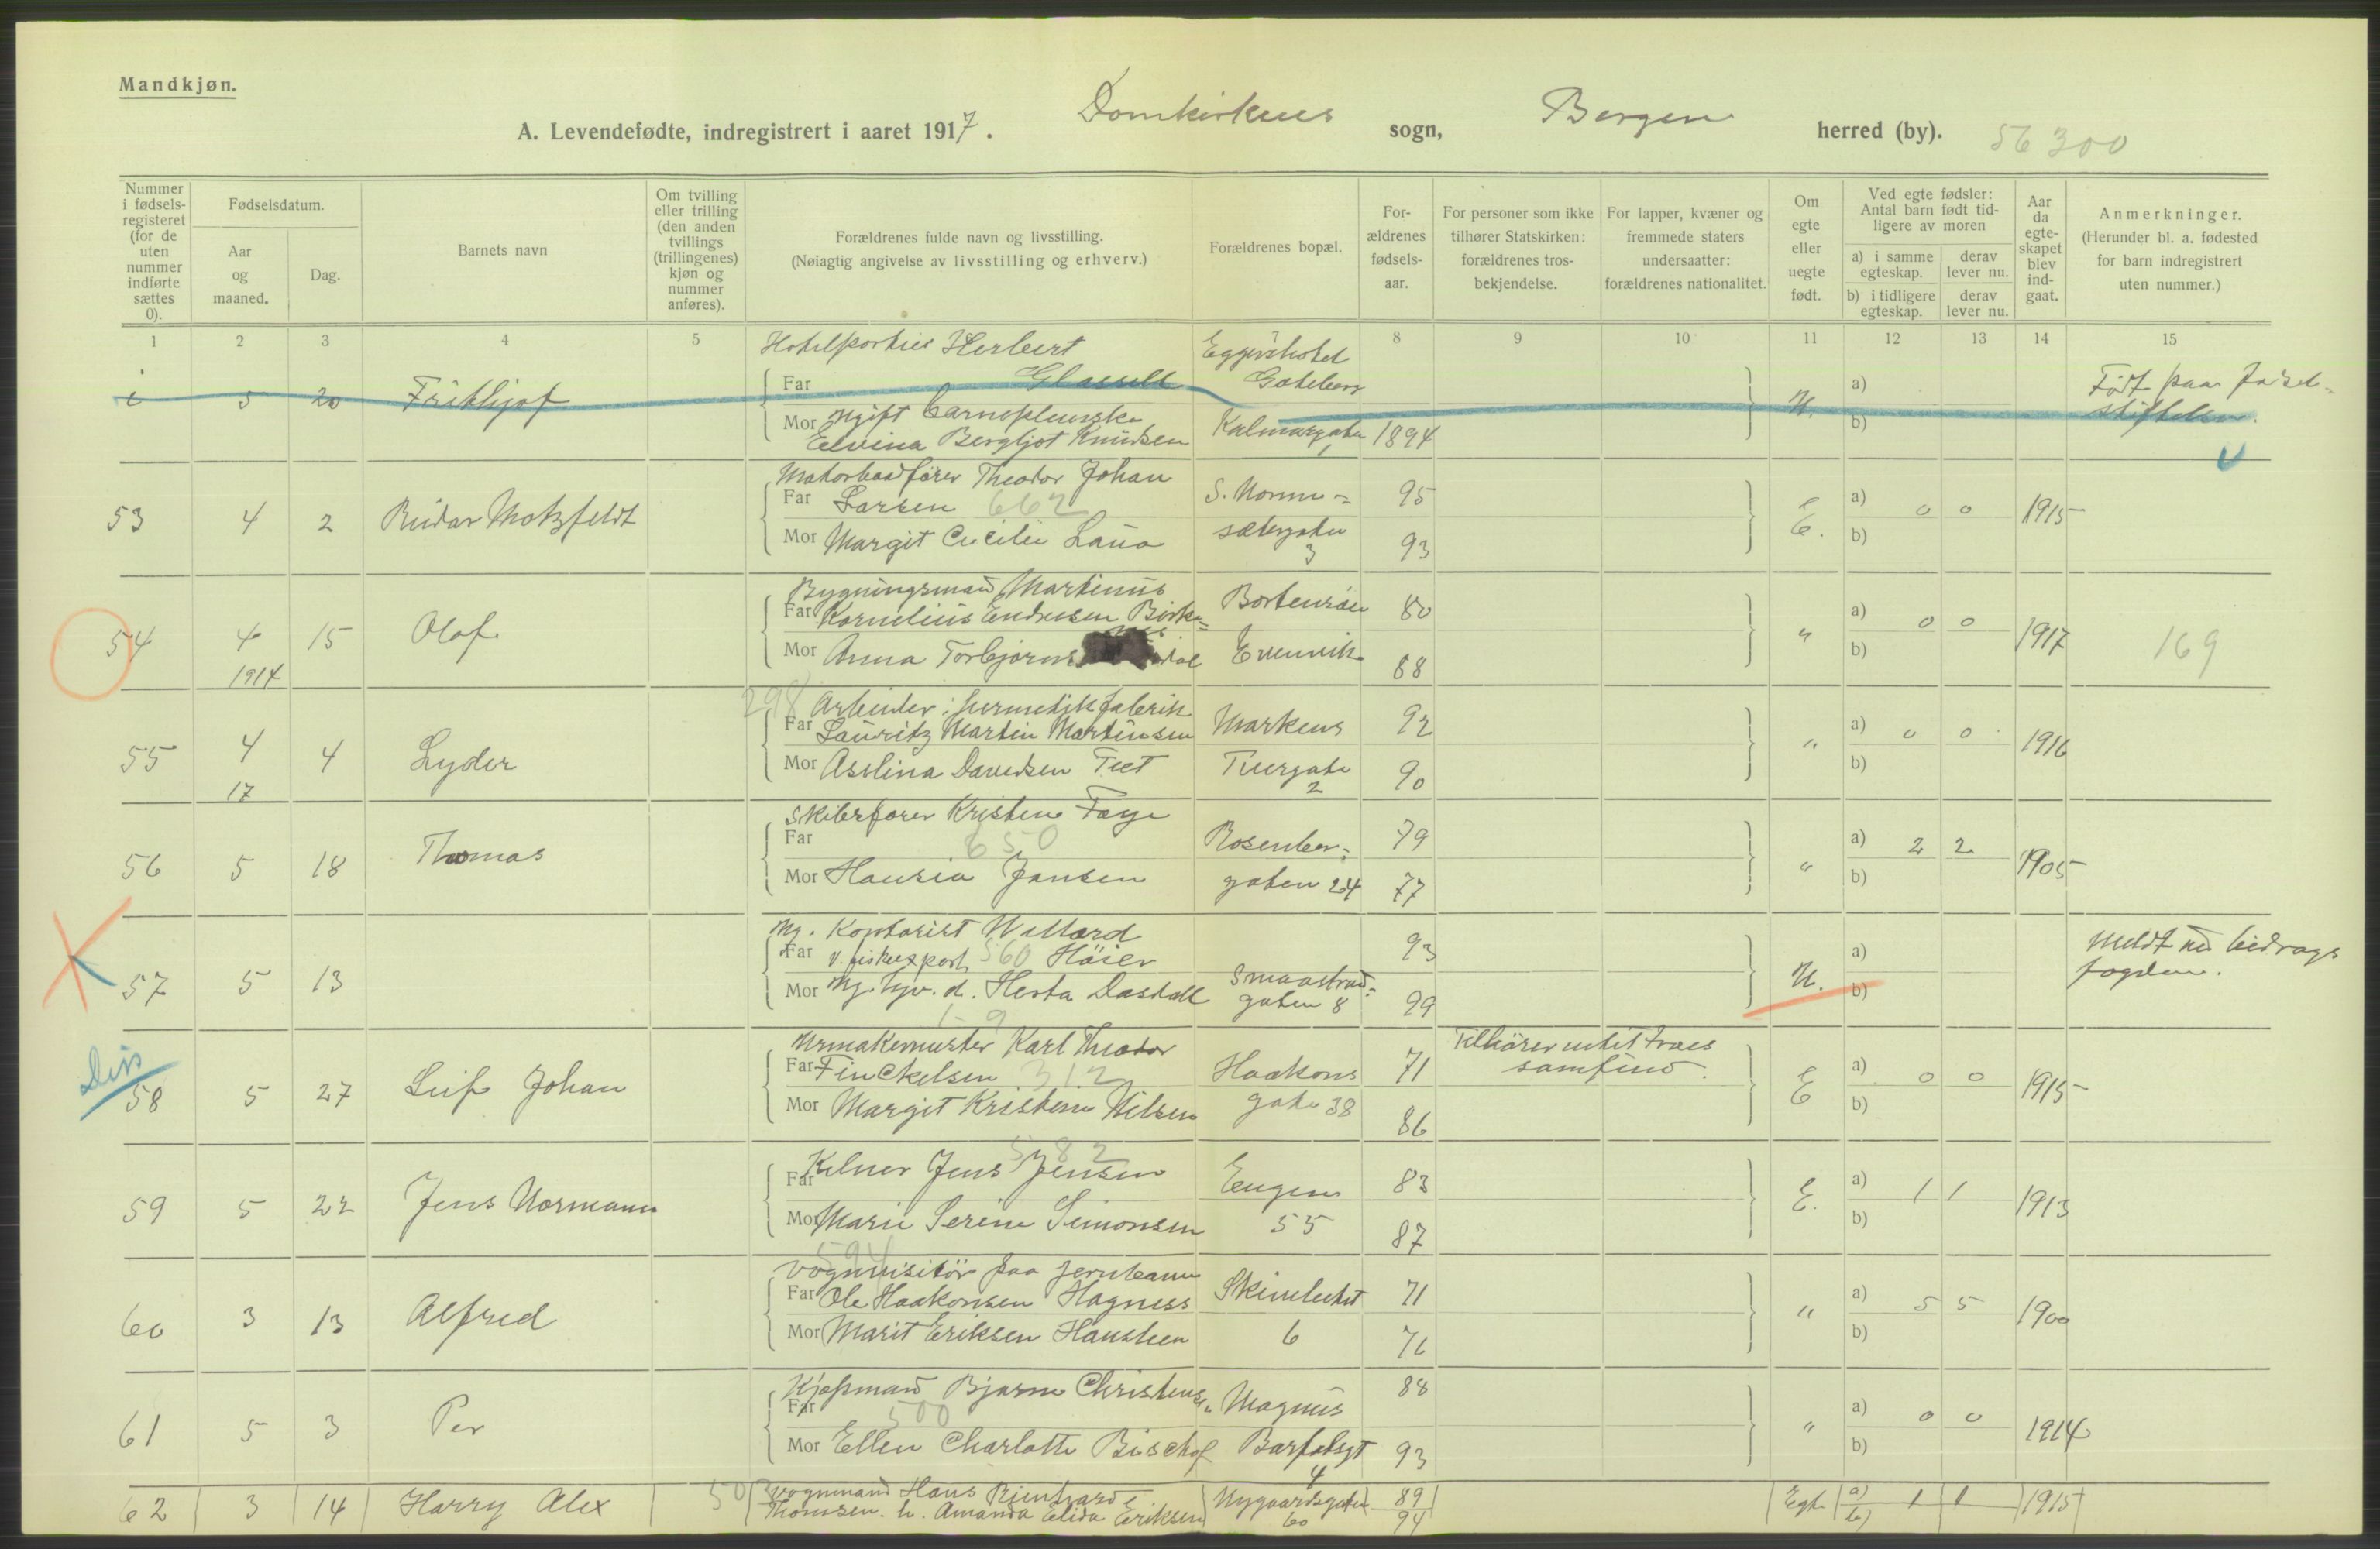 Mandkjøn.
A. Levendefødte, indregistrert i aaret 1917. Domkirkens sogn, Bergen herred (by). 56300
Nummer i fødsels-registeret (for de uten nummer indførte sættes 0).
Fødselsdatum.
Aar og maaned.
Dag.
Barnets navn
Om tvilling eller trilling (den anden tvillings (trillingenes) kjøn og nummer anføres).
Forældrenes fulde navn og livsstilling.
(Nøiagtig angivelse av livsstilling og erhverv.)
Forældrenes bopæl.
For-ældrenes fødsels-aar.
For personer som ikke tilhører Statskirken: forældrenes tros-bekjendelse.
For lapper, kvæner og fremmede staters undersaatter: forældrenes nationalitet.
Om egte eller uegte født.
Ved egte fødsler: Antal barn født tid-ligere av moren
a) i samme egteskap.
derav lever nu.
b) i tidligere egteskap.
derav lever nu.
Aar da egte-skapet blev ind-gaat.
Anmerkninger.
(Herunder bl. a. fødested for barn indregistrert uten nummer.)
1 2 3 4 5 7 8 9 10 11 12 13 14 15
Hotelportier Herbert
5 20 Frithjof Far Göteborg a) Født paa Fødsels-
Mor Ugift
Elvina Bergljot Knudsen Kalmargaten 1 1894 U. b) stiftelsen.
Motorbaadfører Theodor Johan
Far Larsen 662 S. Nonne- 95 a) 0 0
53 4 2 Reidar Motzfeldt E. 1915
Mor Margit Cecilie sætergaten 3 93 b)
Bygningsmand Martinus
Far Kornelius Endresen 80 a) 0 0
54 4 1914 15 Olaf " 1917 169
Mor Anna Evenvik 88 b)
298 Arbeider i hermetikfabrik
Far Lauritz Martin Martinsen Markens 92 a) 0 0
55 4 17 4 Lyder " 1916
Mor Asslina Davidsen 2 90 b)
Skibsfører Kristen Faye
Far 650 Rosenber- 79 a) 2 2
56 5 18 Thomas " 1905
Mor Hansia Jansen gaten 24 77 b)
Ug. Kontorist Wallard
Far v. fiskeexport 560 Höier 93 a) Meldt til bidrags
57 5 13 U. fogden.
Mor Ug. Herta Dastøll Smaastrand-gaten 8 99 b)
Urmakermester Karl Theodor Tilhører intet troes
Far Finckelsen 312 Haakons 71 samfund. a) 0 0
Diss 58 5 27 Leif Johan E 1915
Mor Margit Kristine Nilsen gate 38 86 b)
582
Far Kelner Jens Jensen Eugens 83 a) 1 1
59 5 22 Jens Normann E. 1913
Mor Marie Serine Simonsen 55 87 b)
594
Vognvisitör paa Jernbanen
Far Ole Haakonsen Hagness 71 a) 5 5
60 3 13 Alfred " 1900
Mor Marit Eriksen Hansteen 6 76 b)
Kjøpmand Bjarne Christensen Magnus 88
Far 500 a) 0 0
61 5 3 Per " 1914
Mor Ellen Charlotte Bischof Barfotsgt 4 93 b)
62 3 14 Harry Alex 50 Vognmand Hans Reinhard Nygaardsgaten 89 Egte a) 1 1 1915
Thomsen. h. Amanda Elida Eriksen 60 94 b)